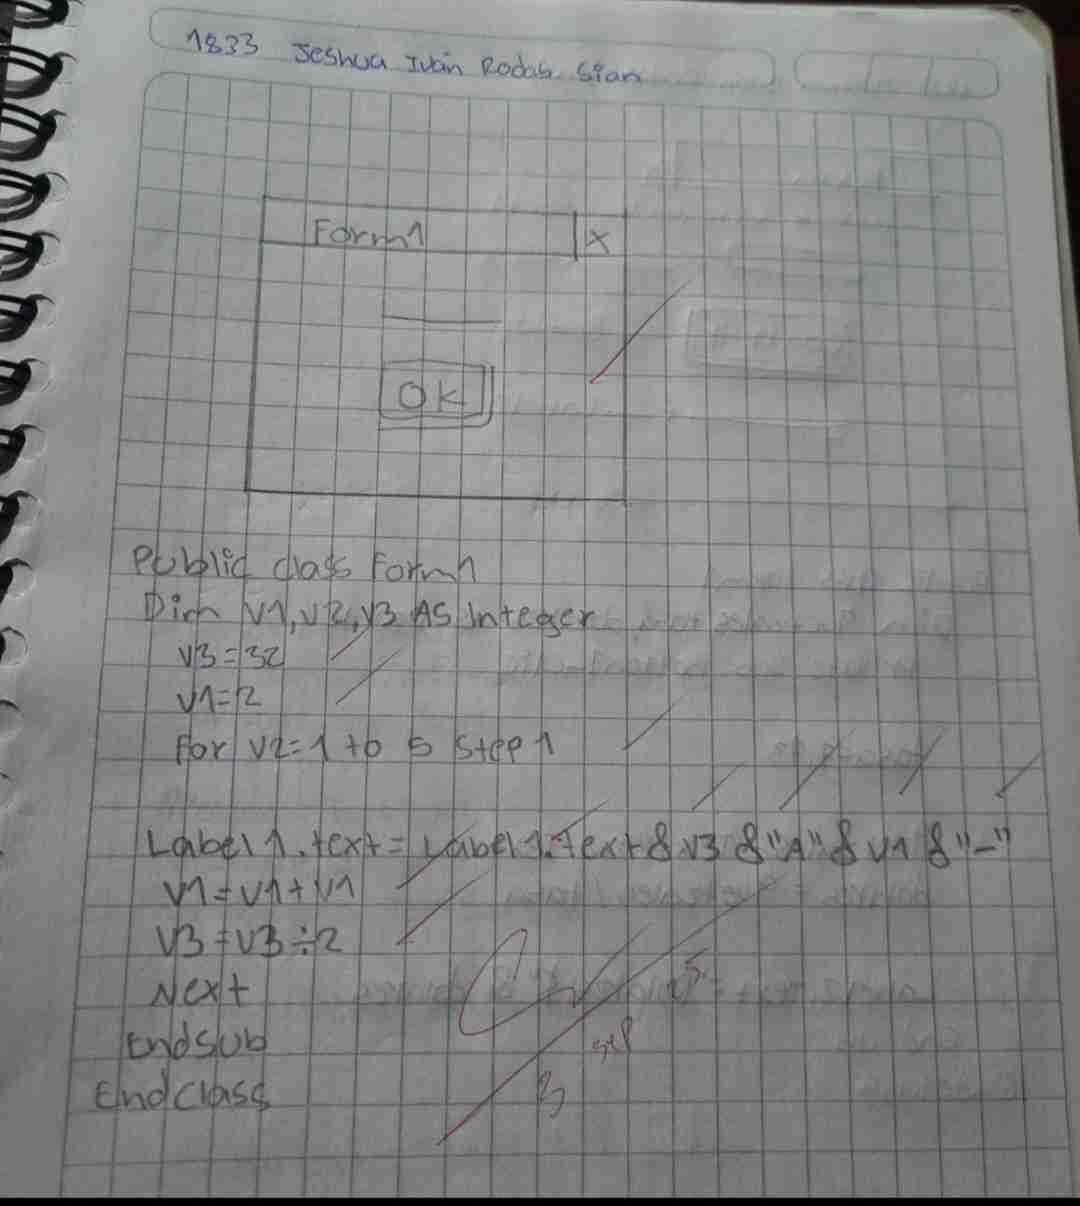 1833 Jeshua Iván Rodas Sian
Form1 X
OK
Public class Form1
Dim V1, V2, V3 AS Integer
V3=32
V1=2
For V2=1 to 5 Step 1
Label1.text = Label1.text & V3 & "A" & V1 & "-"
V1=V1+V1
V3=V3÷2
Next
Endsub
Endclass